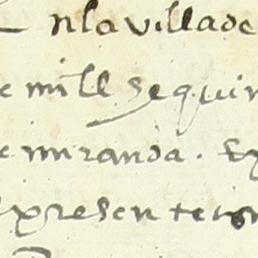 nla villa de
e mill e quin
e miranda . Ex
xpresen te